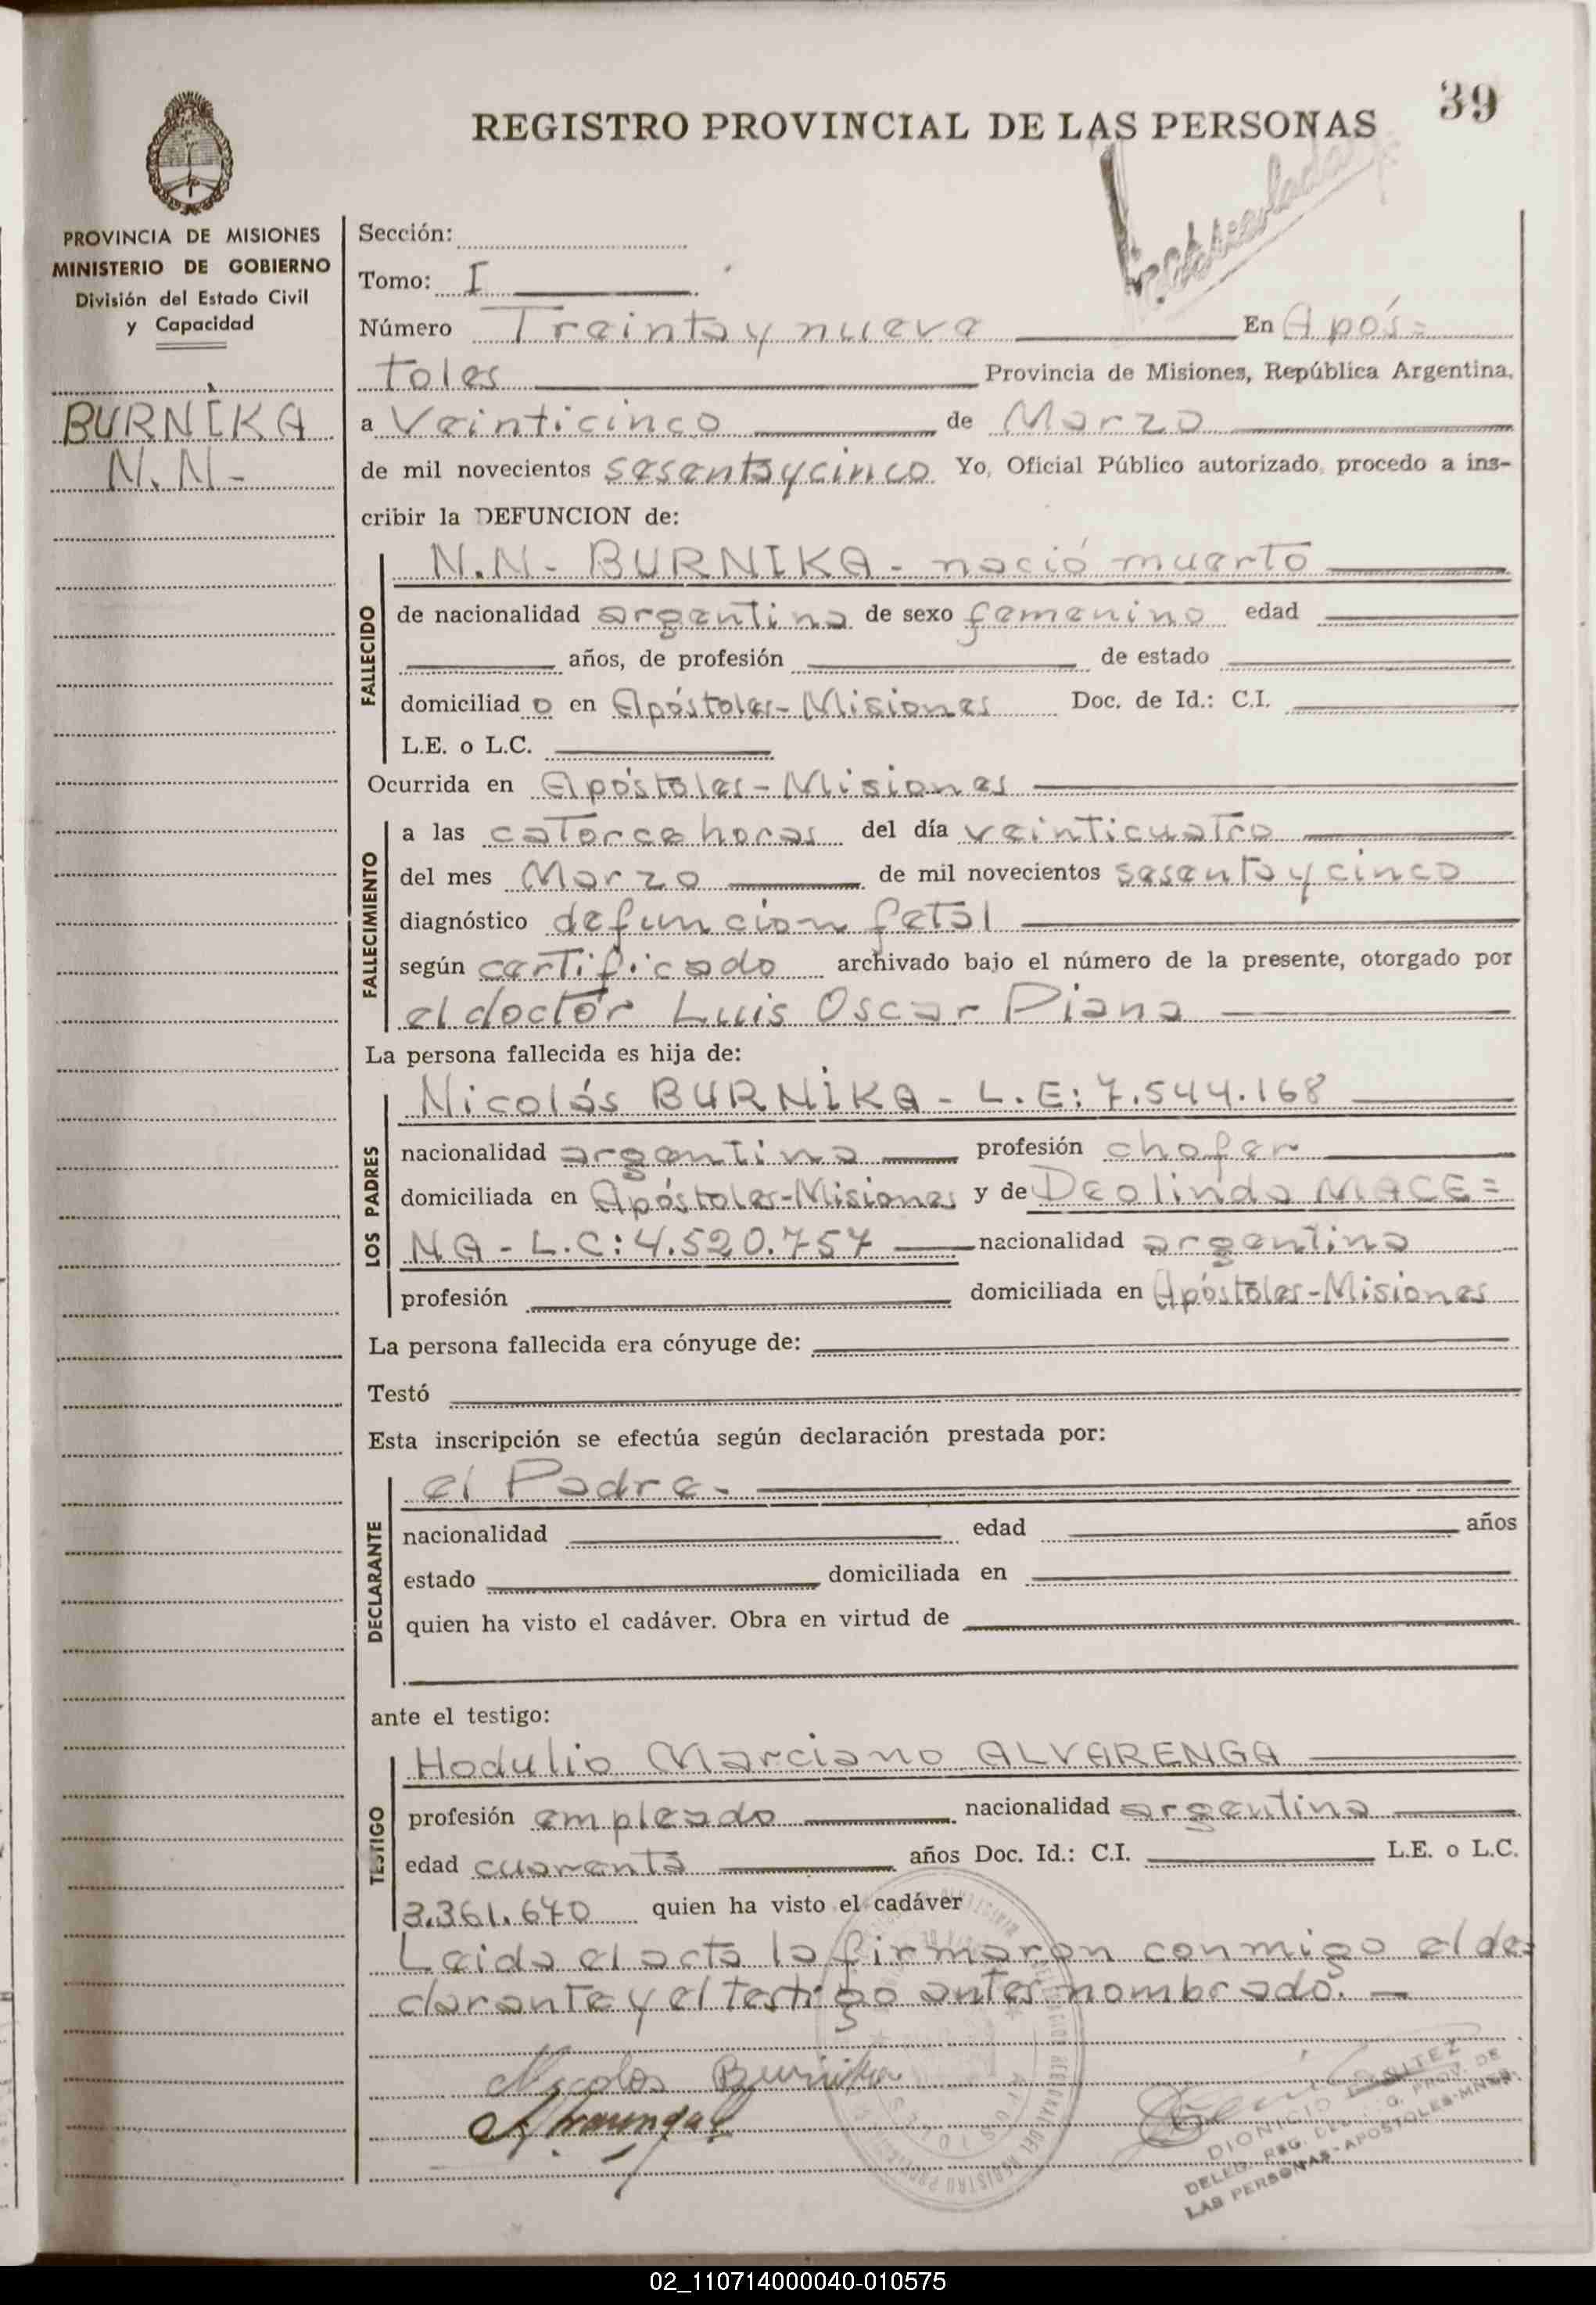 39
REGISTRO PROVINCIAL DE LAS PERSONAS
PROVINCIA DE MISIONES
MINISTERIO DE GOBIERNO
División del Estado Civil
y Capacidad
BURNIKA
N.N-
Sección:
Tomo: I
Número Treinta y nueve En Após=
toles Provincia de Misiones, República Argentina,
a Veinticinco de Marzo
de mil novecientos sesenta y cinco Yo, Oficial Público autorizado, procedo a ins-
cribir la DEFUNCION de:
FALLECIDO
N.N- BURNIKA- nació muerto
de nacionalidad argentina de sexo femenino edad
años, de profesión de estado
domiciliad o en Apóstoles-Misiones Doc. de Id.: C.I.
L.E. o L.C.
Ocurrida en Apóstoles-Misiones
FALLECIMIENTO
a las catorce horas del día veinticuatro
del mes Marzo de mil novecientos sesenta y cinco
diagnóstico defuncion fetal
según certificado archivado bajo el número de la presente, otorgado por
el doctor Luis Oscar Piana
La persona fallecida es hija de:
LOS PADRES
Nicolás BURNIKA - L.E: 7.544.168
nacionalidad argentina profesión chofer
domiciliada en Apóstoles-Misiones y de Deolinda MACE=
NA - L.C: 4.520.757 nacionalidad argentina
profesión domiciliada en Apóstoles-Misiones
La persona fallecida era cónyuge de:
Testó
Esta inscripción se efectúa según declaración prestada por:
DECLARANTE
el Padre-
nacionalidad edad años
estado domiciliada en
quien ha visto el cadáver. Obra en virtud de
ante el testigo:
TESTIGO
Hodulio Marciano ALVARENGA
profesión empleado nacionalidad argentina
edad cuarenta años Doc. Id.: C.I. L.E. o L.C.
3.361.640 quien ha visto el cadáver
Leida el acta la firmaron conmigo el de=
clarante y el testigo antes nombrado. -
Nicolas Burnika
DIONICIO BENITEZ
LAS PERSONAS - APOSTOLES-MNES.
02_110714000040-010575